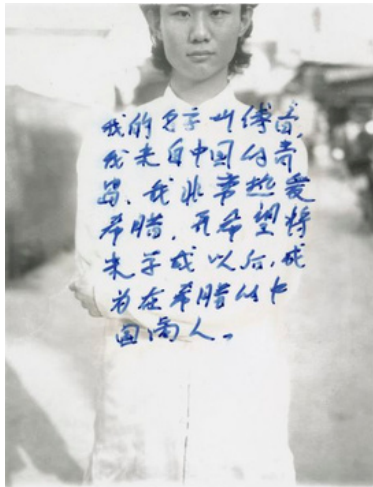 我的名字叫缚音,
我来自中国的青
岛、我非常热爱
希腊,希望将
来学成以后,成
为在希腊的中
国商人。